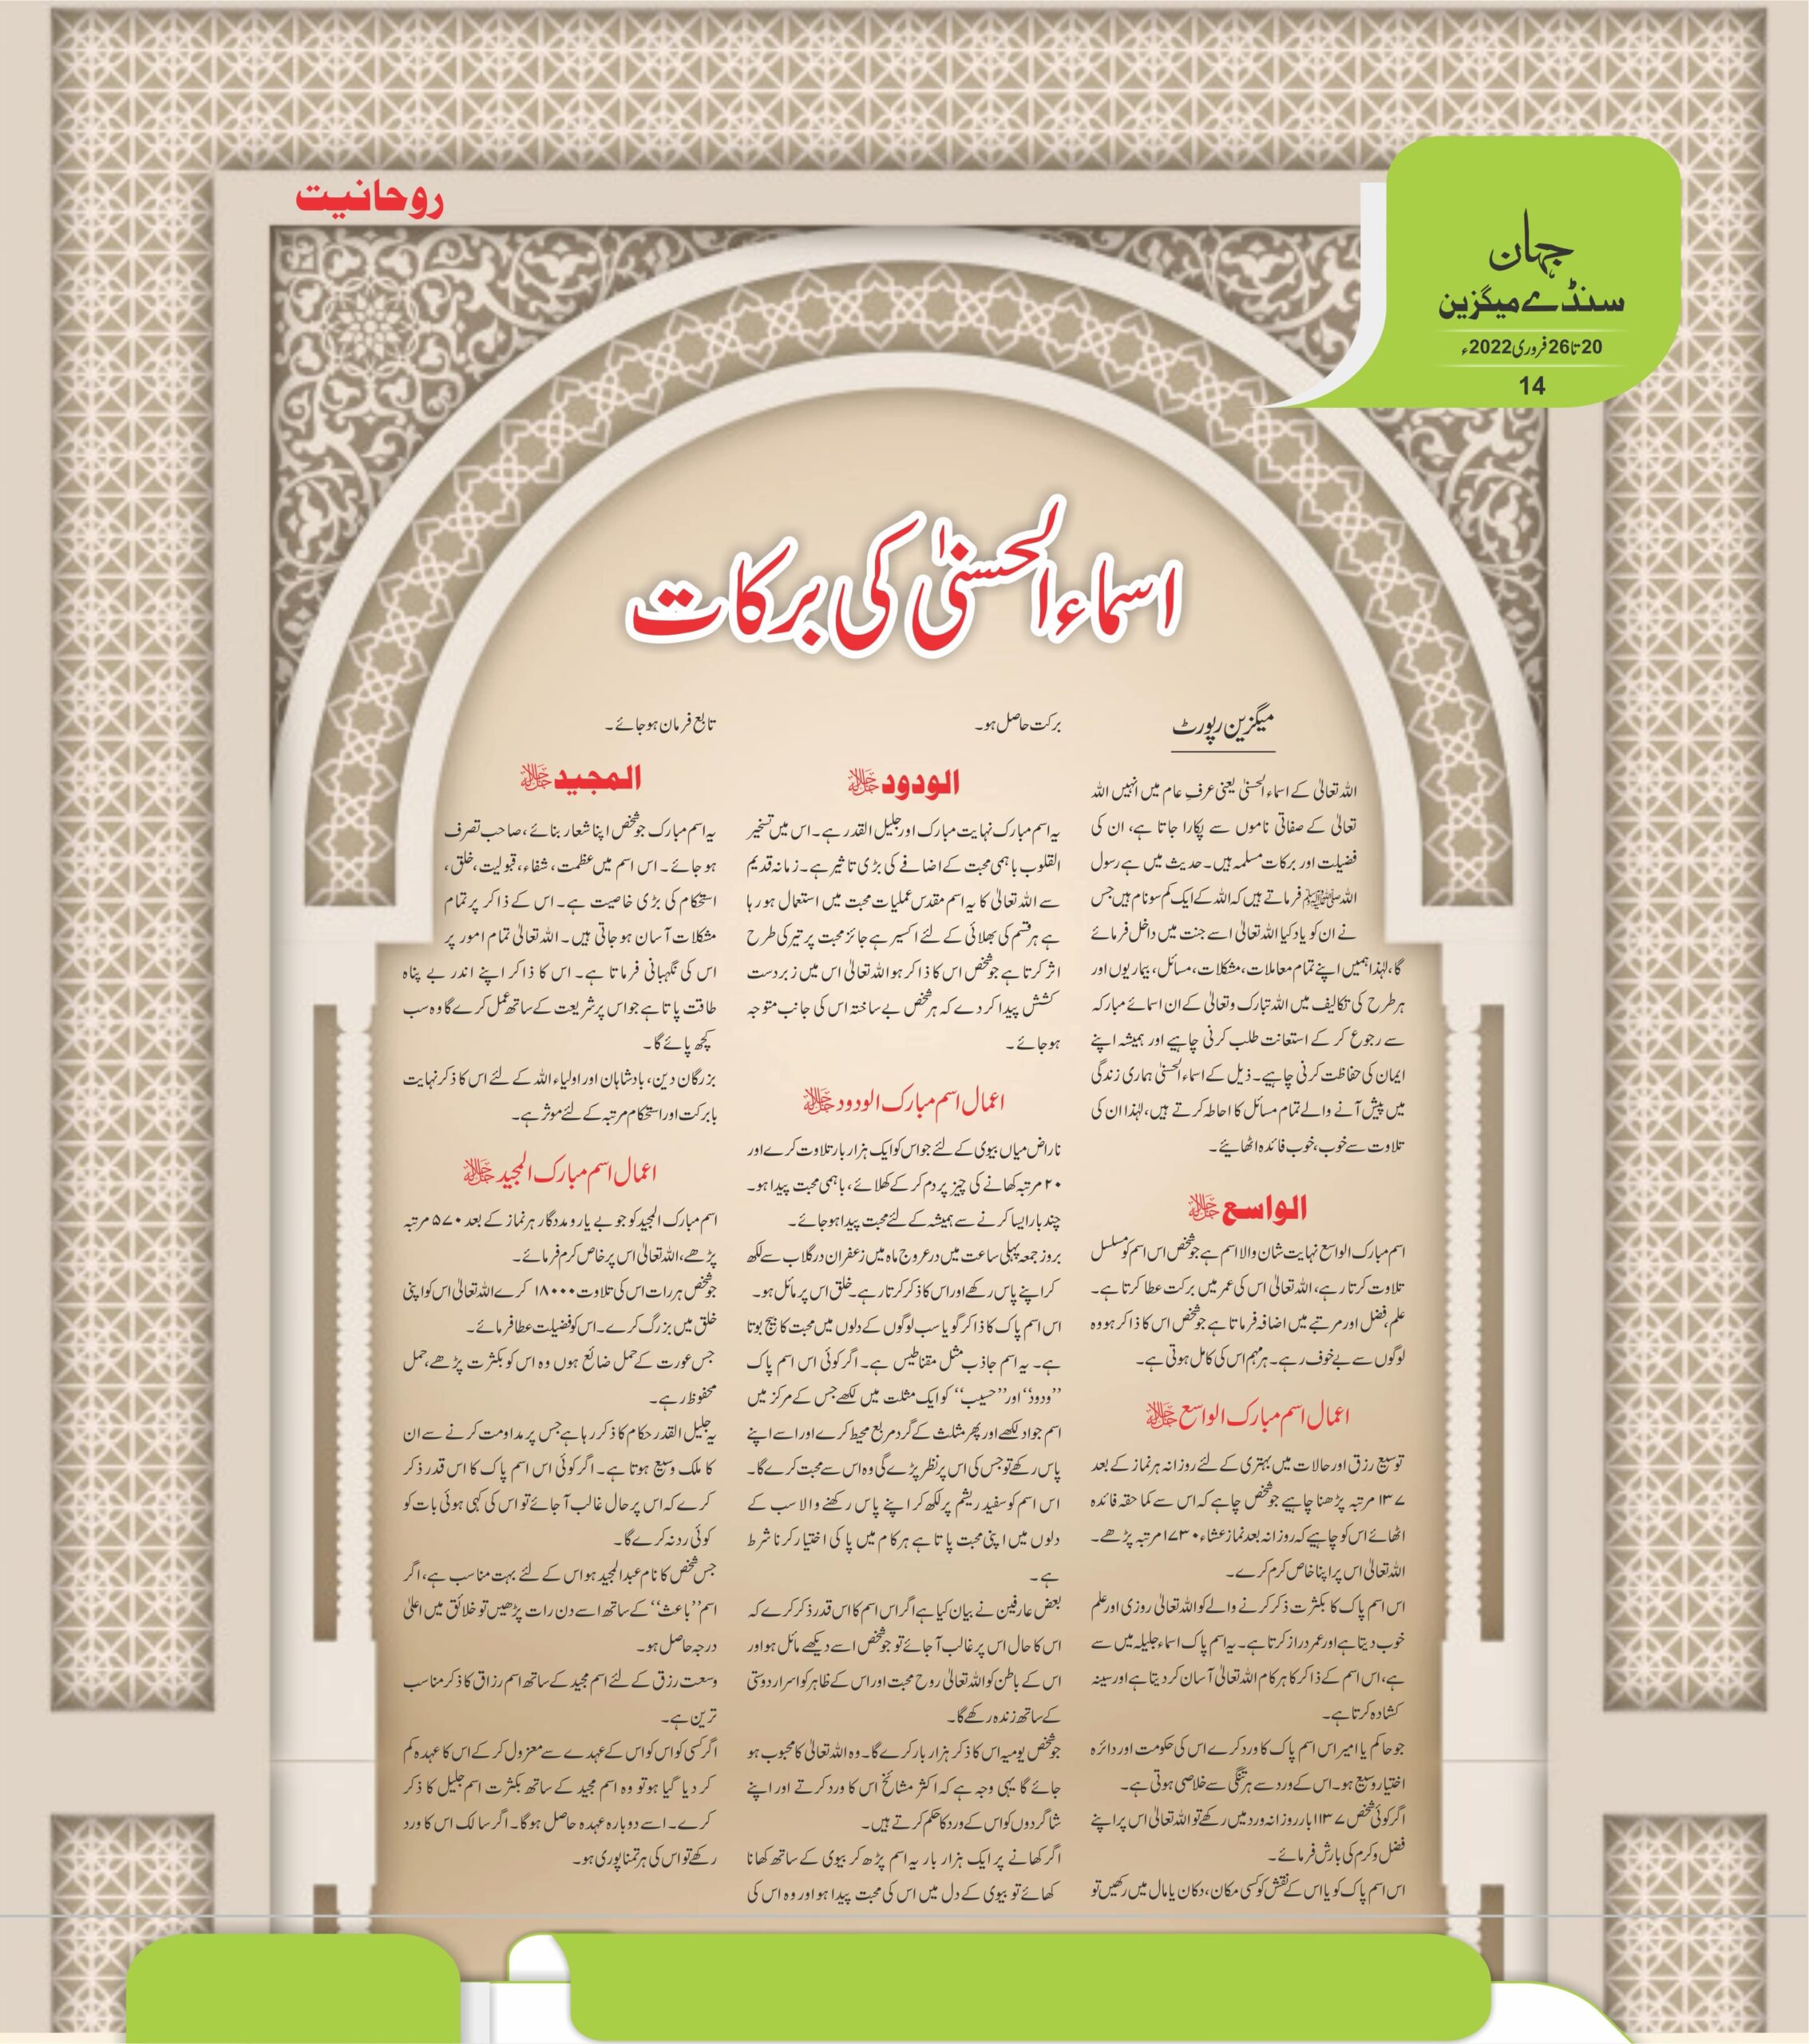 روحانیت
جہان
سنڈے میگزین
20تا26فروری2022ء
14
اسماءالحسنیٰ کی برکات
میگزین رپورٹ
اللہ تعالیٰ کے اسماءالحسنیٰ یعنی عرفِ عام میں انہیں اللہ
تعالیٰ کے صفاتی ناموں سے پکارا جاتا ہے، ان کی
فضیلت اور برکات مسلمہ ہیں۔ حدیث میں ہے رسول
اللہ ﷺ فرماتے ہیں کہ اللہ کے ایک کم سو نام ہیں جس
نے ان کو یاد کیا اللہ تعالیٰ اسے جنت میں داخل فرمائے
گا، لہٰذا ہمیں اپنے تمام معاملات، مشکلات، مسائل، بیماریوں اور
ہر طرح کی تکالیف میں اللہ تبارک وتعالیٰ کے ان اسمائے مبارکہ
سے رجوع کر کے استعانت طلب کرنی چاہیے اور ہمیشہ اپنے
ایمان کی حفاظت کرنی چاہیے۔ ذیل کے اسماءالحسنیٰ ہماری زندگی
میں پیش آنے والے تمام مسائل کا احاطہ کرتے ہیں، لہٰذا ان کی
تلاوت سے خوب، خوب فائدہ اٹھائیے۔
الواسع جل جلالہ
اسم مبارک الواسع نہایت شان والا اسم ہے جو شخص اس اسم کو مسلسل
تلاوت کرتا رہے، اللہ تعالیٰ اس کی عمر میں برکت عطا کرتا ہے۔
علم، فضل اور مرتبے میں اضافہ فرماتا ہے جو شخص اس کا ذاکر ہو وہ
لوگوں سے بے خوف رہے۔ ہر مہم اس کی کامل ہوتی ہے۔
اعمال اسم مبارک الواسع جل جلالہ
توسیع رزق اور حالات میں بہتری کے لئے روزانہ ہر نماز کے بعد
۱۳۷ مرتبہ پڑھنا چاہیے جو شخص چاہے کہ اس سے کما حقہ فائدہ
اٹھائے اس کو چاہیے کہ روزانہ بعد نماز عشاء ۱۷۳۰ مرتبہ پڑھے۔
اللہ تعالیٰ اس پر اپنا خاص کرم کرے۔
اس اسم پاک کا بکثرت ذکر کرنے والے کو اللہ تعالیٰ روزی اور علم
خوب دیتا ہے اور عمر دراز کرتا ہے۔ یہ اسم پاک اسماء جلیلہ میں سے
ہے، اس اسم کے ذاکر کا ہر کام اللہ تعالیٰ آسان کر دیتا ہے اور سینہ
کشادہ کرتا ہے۔
جو حاکم یا امیر اس اسم پاک کا ورد کرے اس کی حکومت اور دائرہ
اختیار وسیع ہو۔ اس کے ورد سے ہر تنگی سے خلاصی ہوتی ہے۔
اگر کوئی شخص ۱۱۳۷ بار روزانہ ورد میں رکھے تو اللہ تعالیٰ اس پر اپنے
فضل و کرم کی بارش فرمائے۔
اس اسم پاک کو یا اس کے نقش کو کسی مکان، دکان یا مال میں رکھیں تو
برکت حاصل ہو۔
الودود جل جلالہ
یہ اسم مبارک نہایت مبارک اور جلیل القدر ہے۔ اس میں تسخیر
القلوب باہمی محبت کے اضافے کی بڑی تاثیر ہے۔ زمانہ قدیم
سے اللہ تعالیٰ کا یہ اسم مقدس عملیات محبت میں استعمال ہو رہا
ہے ہر قسم کی بھلائی کے لئے اکسیر ہے جائز محبت پر تیر کی طرح
اثر کرتا ہے جو شخص اس کا ذاکر ہو اللہ تعالیٰ اس میں زبردست
کشش پیدا کردے کہ ہر شخص بے ساختہ اس کی جانب متوجہ
ہو جائے۔
اعمال اسم مبارک الودود جل جلالہ
ناراض میاں بیوی کے لئے جو اس کو ایک ہزار بار تلاوت کرے اور
۲۰ مرتبہ کھانے کی چیز پر دم کر کے کھلائے، باہمی محبت پیدا ہو۔
چند بار ایسا کرنے سے ہمیشہ کے لئے محبت پیدا ہو جائے۔
بروز جمعہ پہلی ساعت میں در عروج ماہ میں زعفران در گلاب سے لکھ
کر اپنے پاس رکھے اور اس کا ذکر کرتا رہے۔ خلق اس پر مائل ہو۔
اس اسم پاک کا ذاکر گویا سب لوگوں کے دلوں میں محبت کا بیج بوتا
ہے۔ یہ اسم جاذب مثل مقناطیس ہے۔ اگر کوئی اس اسم پاک
”ودود“ اور ”حسیب“ کو ایک مثلث میں لکھے جس کے مرکز میں
اسم جواد لکھے اور پھر مثلث کے گرد مربع محیط کرے اور اسے اپنے
پاس رکھے تو جس کی اس پر نظر پڑے گی وہ اس سے محبت کرے گا۔
اس اسم کو سفید ریشم پر لکھ کر اپنے پاس رکھنے والا سب کے
دلوں میں اپنی محبت پاتا ہے ہر کام میں پاکی اختیار کرنا شرط
ہے۔
بعض عارفین نے بیان کیا ہے اگر اس اسم کا اس قدر ذکر کرے کہ
اس کا حال اس پر غالب آ جائے تو جو شخص اسے دیکھے مائل ہو اور
اس کے باطن کو اللہ تعالیٰ روح محبت اور اس کے ظاہر کو اسرار دوستی
کے ساتھ زندہ رکھے گا۔
جو شخص یومیہ اس کا ذکر ہزار بار کرے گا۔ وہ اللہ تعالیٰ کا محبوب ہو
جائے گا یہی وجہ ہے کہ اکثر مشائخ اس کا ورد کرتے اور اپنے
شاگردوں کو اس کے ورد کا حکم کرتے ہیں۔
اگر کھانے پر ایک ہزار بار یہ اسم پڑھ کر بیوی کے ساتھ کھانا
کھائے تو بیوی کے دل میں اس کی محبت پیدا ہو اور وہ اس کی
تابع فرمان ہو جائے۔
المجید جل جلالہ
یہ اسم مبارک جو شخص اپنا شعار بنائے، صاحب تصرف
ہو جائے۔ اس اسم میں عظمت، شفاء، قبولیت، خلق،
استحکام کی بڑی خاصیت ہے۔ اس کے ذاکر پر تمام
مشکلات آسان ہو جاتی ہیں۔ اللہ تعالیٰ تمام امور پر
اس کی نگہبانی فرماتا ہے۔ اس کا ذاکر اپنے اندر بے پناہ
طاقت پاتا ہے جو اس پر شریعت کے ساتھ عمل کرے گا وہ سب
کچھ پائے گا۔
بزرگان دین، بادشاہان اور اولیاء اللہ کے لئے اس کا ذکر نہایت
بابرکت اور استحکام مرتبہ کے لئے موثر ہے۔
اعمال اسم مبارک المجید جل جلالہ
اسم مبارک المجید کو جو بے یارومددگار ہر نماز کے بعد ۵۷۰ مرتبہ
پڑھے، اللہ تعالیٰ اس پر خاص کرم فرمائے۔
جو شخص ہر رات اس کی تلاوت ۱۸۰۰۰ کرے اللہ تعالیٰ اس کو اپنی
خلق میں بزرگ کرے۔ اس کو فضیلت عطا فرمائے۔
جس عورت کے حمل ضائع ہوں وہ اس کو بکثرت پڑھے، حمل
محفوظ رہے۔
یہ جلیل القدر حکام کا ذکر رہا ہے جس پر مداومت کرنے سے ان
کا ملک وسیع ہوتا ہے۔ اگر کوئی اس اسم پاک کا اس قدر ذکر
کرے کہ اس پر حال غالب آ جائے تو اس کی کہی ہوئی بات کو
کوئی رد نہ کرے گا۔
جس شخص کا نام عبدالمجید ہو اس کے لئے بہت مناسب ہے، اگر
اسم ”باعث“ کے ساتھ اسے دن رات پڑھیں تو خلائق میں اعلیٰ
درجہ حاصل ہو۔
وسعت رزق کے لئے اسم مجید کے ساتھ اسم رزاق کا ذکر مناسب
ترین ہے۔
اگر کسی کو اس کو اس کے عہدے سے معزول کر کے اس کا عہدہ کم
کر دیا گیا ہو تو وہ اسم مجید کے ساتھ بکثرت اسم جلیل کا ذکر
کرے۔ اسے دوبارہ عہدہ حاصل ہوگا۔ اگر سالک اس کا ورد
رکھے تو اس کی ہر تمنا پوری ہو۔